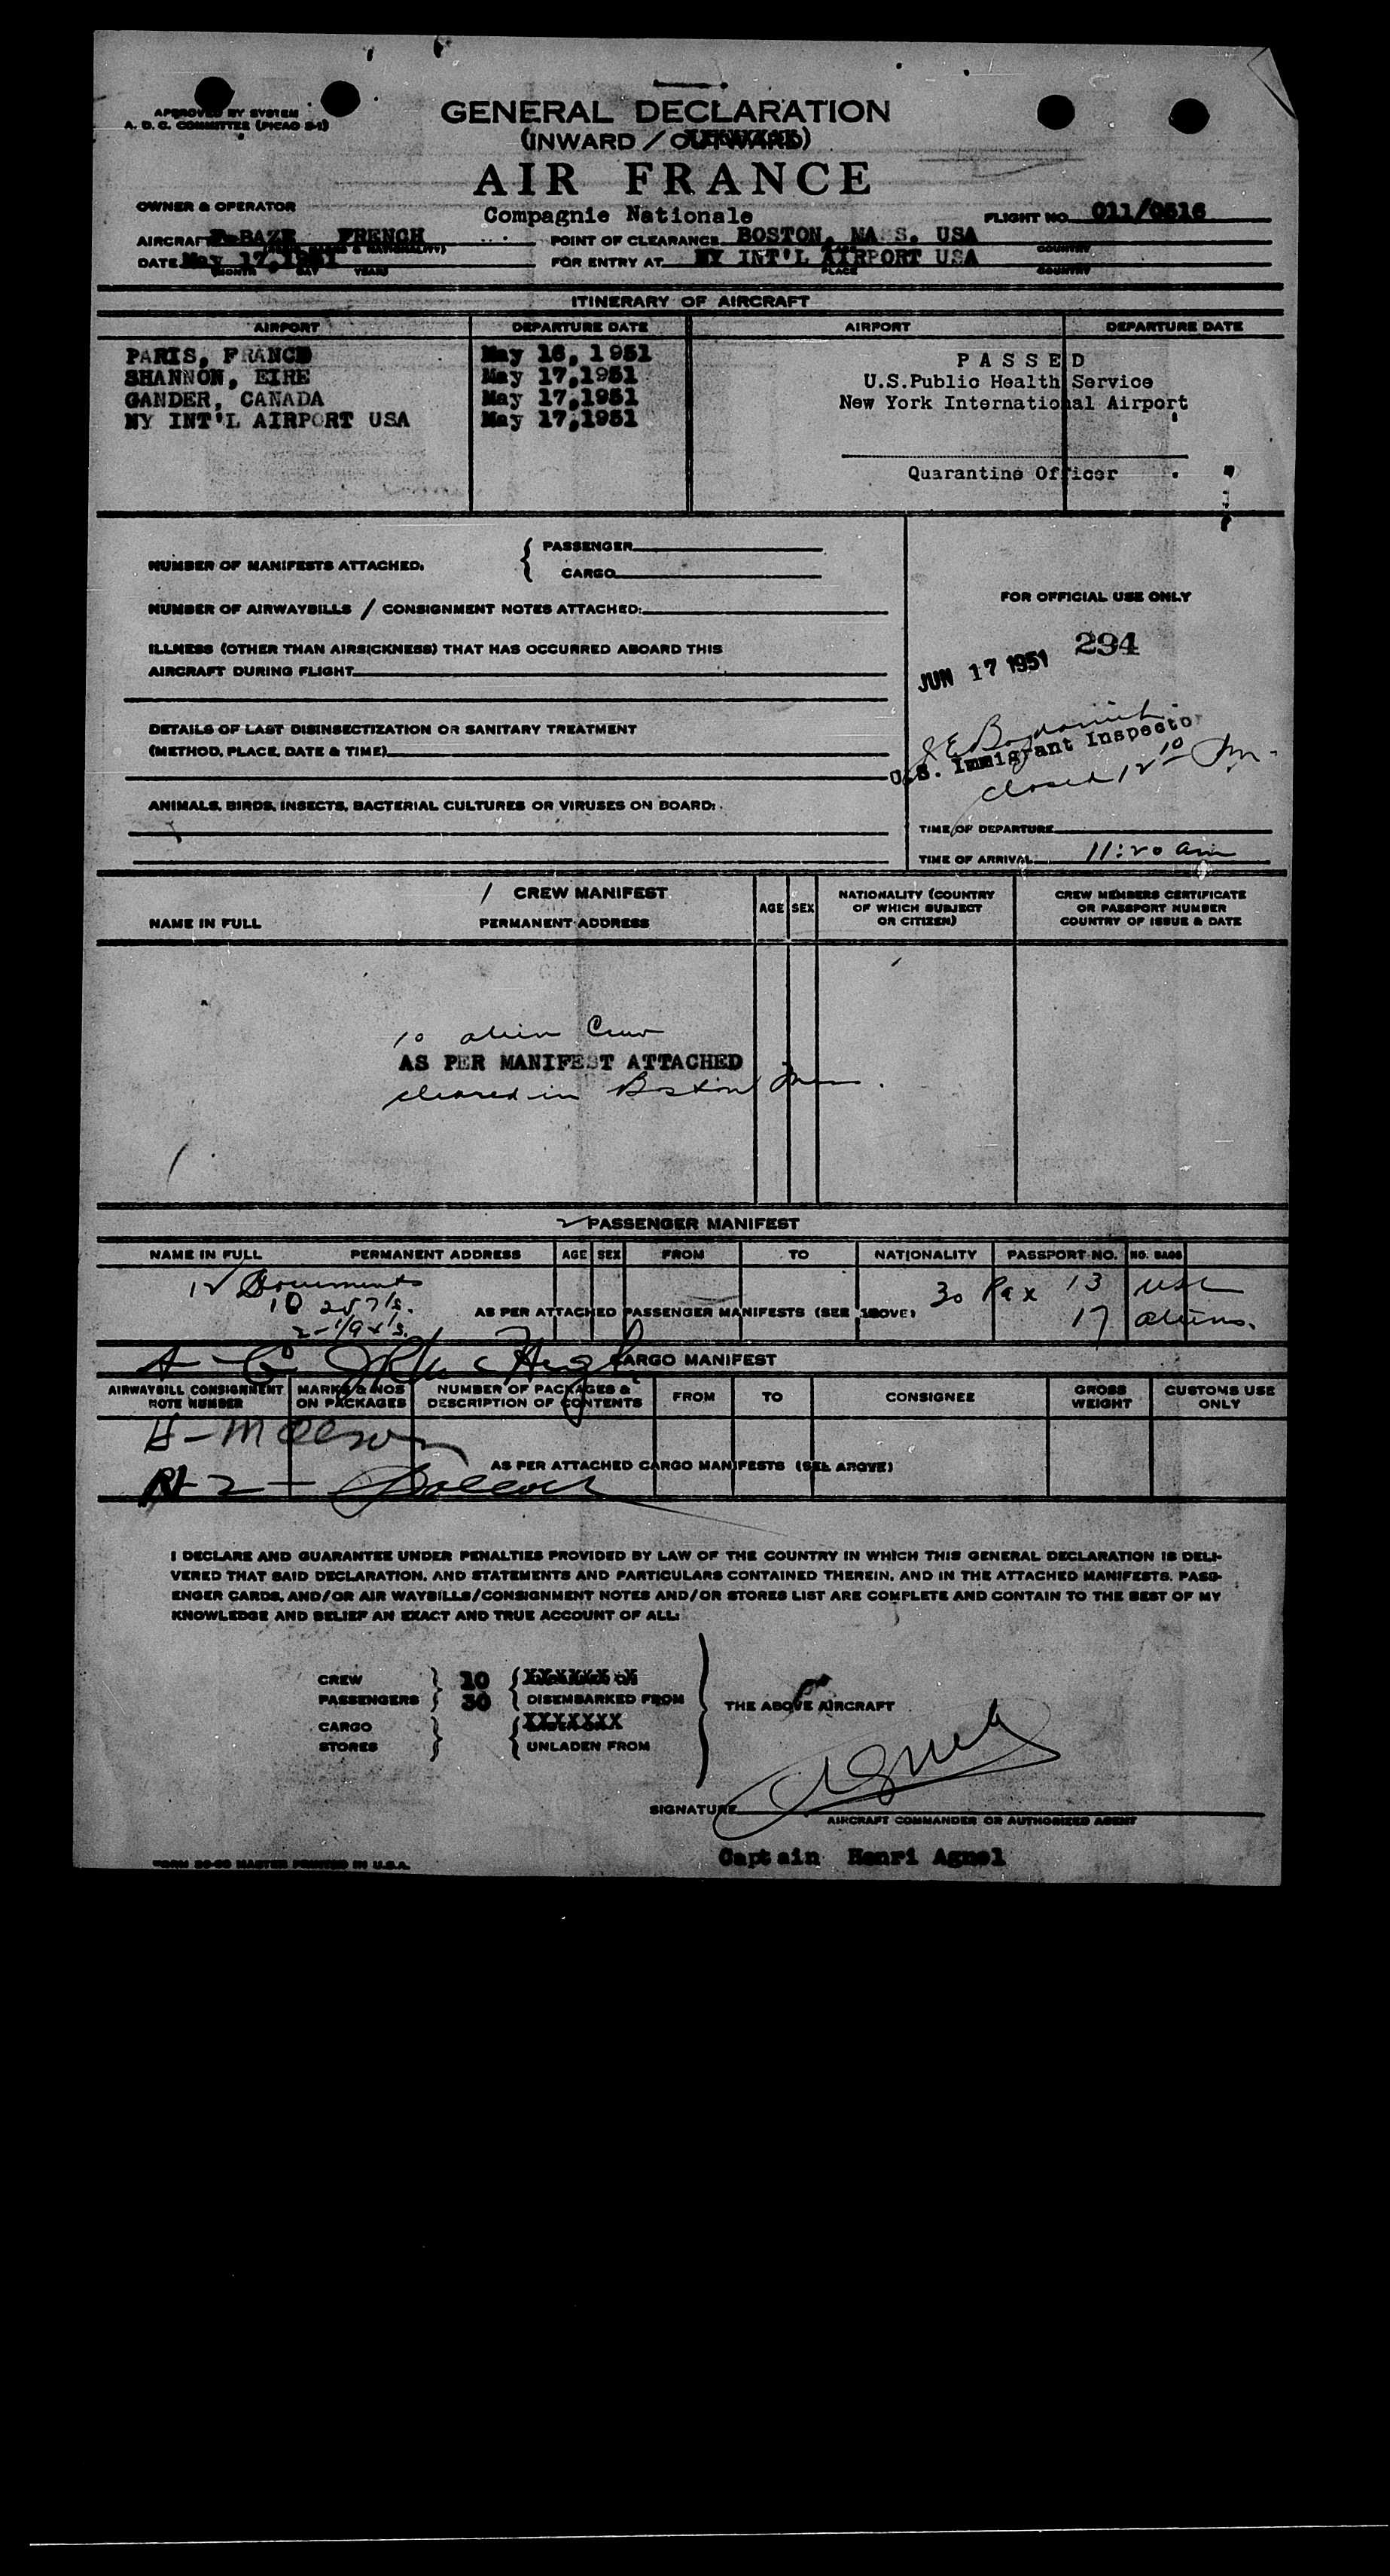 APPROVED BY SYSTEM
A. D. C. COMMITTEE (PICAO S-1)
GENERAL DECLARATION
(INWARD / OUTWARD)
AIR FRANCE
OWNER & OPERATOR
Compagnie Nationale
FLIGHT NO. 011/0516
AIRCRAFT F-BAZE FRENCH
POINT OF CLEARANCE BOSTON, MASS. USA
COUNTRY
DATE May 17,1951
(MONTH DAY YEAR)
FOR ENTRY AT NY INT'L AIRPORT USA
PLACE COUNTRY
ITINERARY OF AIRCRAFT
AIRPORT DEPARTURE DATE AIRPORT DEPARTURE DATE
PARIS, FRANCE May 16, 1951
SHANNON, EIRE May 17,1951
GANDER, CANADA May 17,1951
NY INT'L AIRPORT USA May 17,1951
PASSED
U.S.Public Health Service
New York International Airport
Quarantine Officer
NUMBER OF MANIFESTS ATTACHED.
PASSENGER
CARGO
NUMBER OF AIRWAYBILLS / CONSIGNMENT NOTES ATTACHED:
ILLNESS (OTHER THAN AIRSICKNESS) THAT HAS OCCURRED ABOARD THIS
AIRCRAFT DURING FLIGHT
DETAILS OF LAST DISINSECTIZATION OR SANITARY TREATMENT
(METHOD, PLACE, DATE & TIME)
ANIMALS, BIRDS, INSECTS, BACTERIAL CULTURES OR VIRUSES ON BOARD:
FOR OFFICIAL USE ONLY
294
JUN 17 1951
U.S. Immigrant Inspector
closed 12 10 Pm
TIME OF DEPARTURE
TIME OF ARRIVAL 11:20 am
1 CREW MANIFEST
NAME IN FULL PERMANENT ADDRESS
AGE SEX
NATIONALITY (COUNTRY
OF WHICH SUBJECT
OR CITIZEN)
CREW MEMBERS CERTIFICATE
OR PASSPORT NUMBER
COUNTRY OF ISSUE & DATE
10 alien Crew
AS PER MANIFEST ATTACHED
cleared in Boston
PASSENGER MANIFEST
NAME IN FULL PERMANENT ADDRESS AGE SEX FROM TO NATIONALITY PASSPORT NO. NO. BAGS
12 Documents
10 257/s.
30 Pax 13 USC
17 aliens.
AS PER ATTACHED PASSENGER MANIFESTS (SEE ABOVE)
CARGO MANIFEST
AIRWAYBILL CONSIGNMENT
NOTE NUMBER
MARKS & NOS
ON PACKAGES
NUMBER OF PACKAGES &
DESCRIPTION OF CONTENTS
FROM TO CONSIGNEE
GROSS
WEIGHT
CUSTOMS USE
ONLY
AS PER ATTACHED CARGO MANIFESTS (SEE ABOVE)
I DECLARE AND GUARANTEE UNDER PENALTIES PROVIDED BY LAW OF THE COUNTRY IN WHICH THIS GENERAL DECLARATION IS DELI-
VERED THAT SAID DECLARATION, AND STATEMENTS AND PARTICULARS CONTAINED THEREIN, AND IN THE ATTACHED MANIFESTS, PASS-
ENGER CARDS, AND/OR AIR WAYBILLS/CONSIGNMENT NOTES AND/OR STORES LIST ARE COMPLETE AND CONTAIN TO THE BEST OF MY
KNOWLEDGE AND BELIEF AN EXACT AND TRUE ACCOUNT OF ALL:
CREW 10
PASSENGERS 30 DISEMBARKED FROM
CARGO XXXXXXX
STORES UNLADEN FROM
THE ABOVE AIRCRAFT
SIGNATURE Agnel
AIRCRAFT COMMANDER OR AUTHORIZED AGENT
Captain Henri Agnel